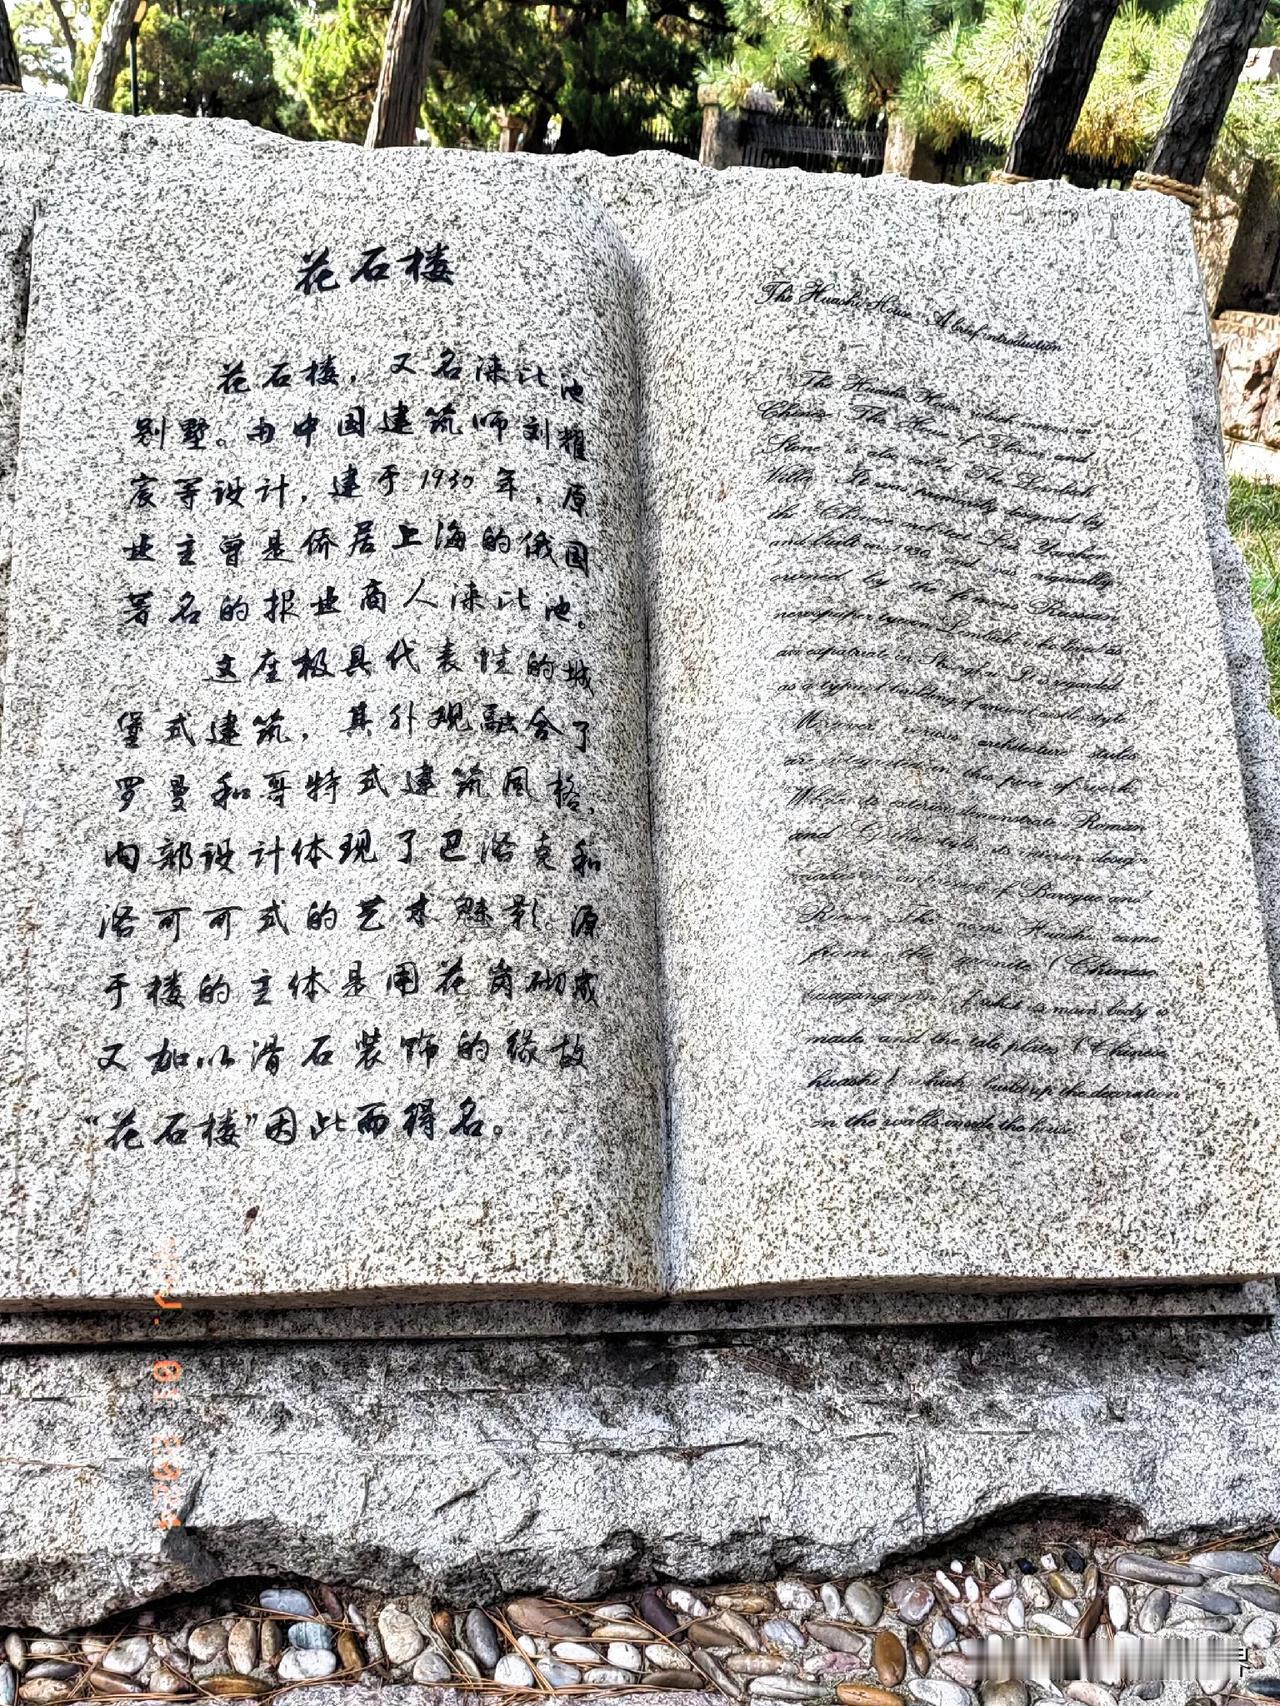 花石楼
花石楼，又名涞比池
别墅。由中国建筑师刘耀
宸等设计，建于1930年，原
业主曾是侨居上海的俄国
著名的报业商人涞比池。
这座极具代表性的城
堡式建筑，其外观融合了
罗曼和哥特式建筑风格，
内部设计体现了巴洛克和
洛可可式的艺术魅影。源
于楼的主体是用花岗砌成
又加以滑石装饰的缘故
“花石楼”因此而得名。
The Huashi House A brief introduction
The Huashi House which means in
Chinese "The House of Flower and
Stone" is also called "The Lembich
Villa". It was primarily designed by
the Chinese architect Liu Yaochen
and built in 1930, and was originally
owned by the famous Russian
newspaper tycoon Lembich who lived as
an expatriate in Shanghai. It is regarded
as a typical building of ancient castle style.
Moreover, various architecture styles
are integrated in this piece of work.
While its exterior demonstrate Roman
and Gothic style, its interior design
of Baroque and
The name Huashi came
from the granite (Chinese
of which its main body is
made, and the talc plates (Chinese
huashi) which build up the decoration
on the walls inside the house.